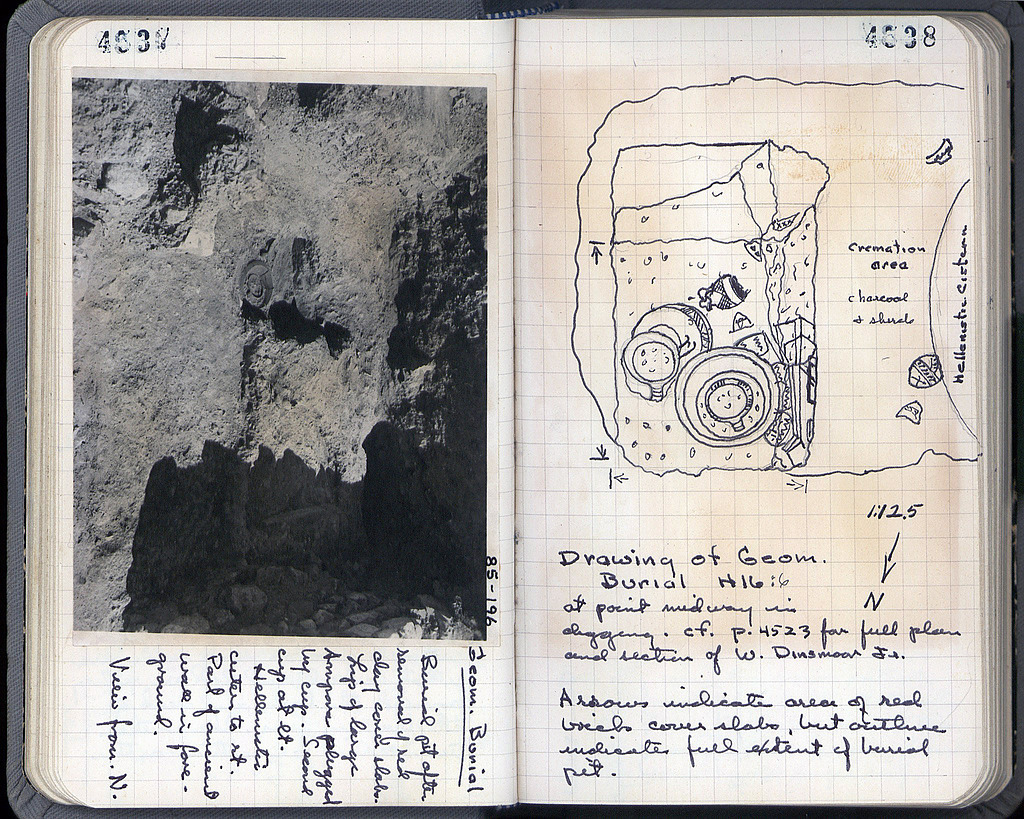 4537
85-196
Geom. Burial
Burial pit after
removal of red
clay cover slabs.
Lip of large
Amphora plugged
by cup. Second
cup at lt.
Hellenistic
cistern to rt.
Part of ancient
wall in fore-
ground.
View from N.
4538
Cremation
area
charcoal
+ sherds
Hellenistic Cistern
1:12.5
N
Drawing of Geom.
Burial H16:6
at point midway in
digging. cf. p. 4523 for full plan
and section of W. Dinsmoor Jr.
Arrows indicate area of red
brick cover slabs, but outline
indicates full extent of burial
pit.